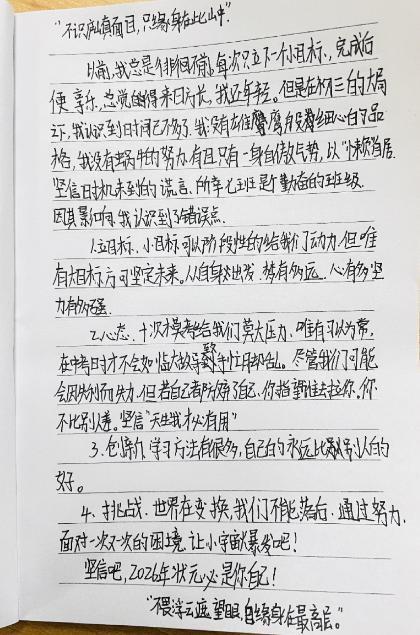 “不识庐山真面目,只缘身在此山中”.
以前,我总是徘徊不前.每次只立下一个小目标,完成后
便享乐,总觉的得来日方长,我还年轻。但是在初三的大局
之下,我认识到时间已不多了.我没有
格,我没有蜗牛的努力.有且只有一身自傲气势,以
坚信时机未到的谎言.所幸七班是个勤奋的班级.
因其影响,我认识到了错误点.
1.立目标.小目标可以阶段性的给我们动力.但唯
有大目标方可坚定未来。从自身出发.梦有多远.心有多坚
力有多强.
2.心态.十次模考给我们莫大压力.唯有习以为常,
在中考时才不会如临大敌导致手忙脚乱。尽管我们可能
会因失利而失力,但若自己都放弃了自己,你指望谁去拉你。你
不比别人差。坚信“天生我才必有用”
3.创新.学习方法有很多,自己的永远比别人的
好。
4.挑战.世界在变换,我们不能落后.通过努力,
面对一次又一次的困境.让小宇宙爆发吧!
坚信吧,2026年状元必是你自己!
“不畏浮云遮望眼,自缘身在最高层。”